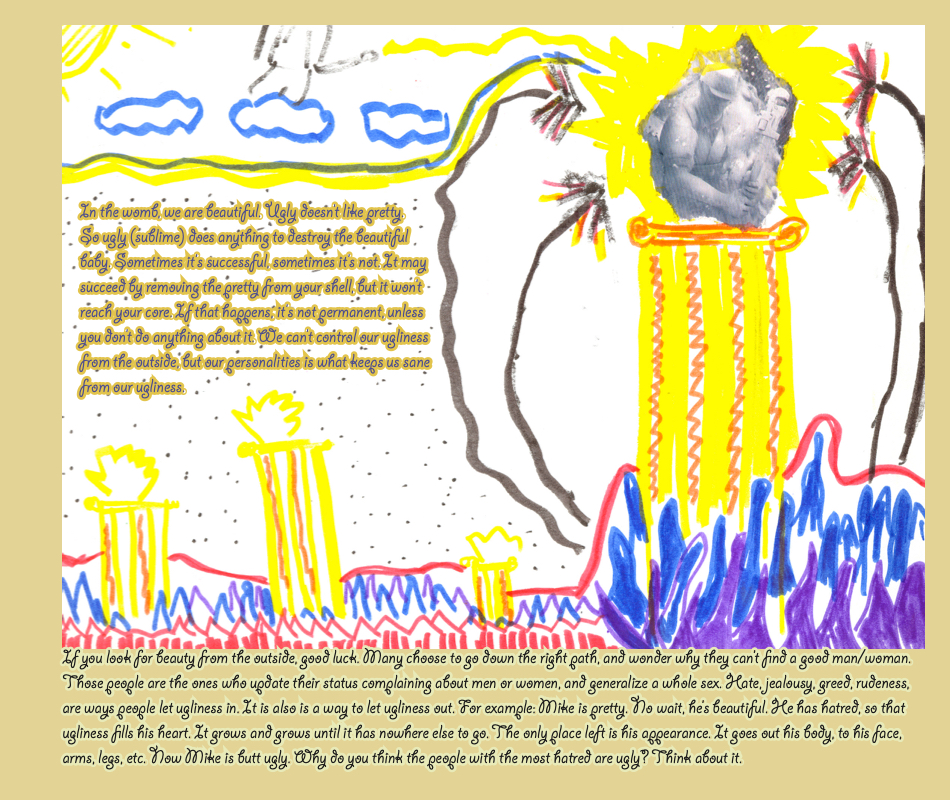 In the womb, we are beautiful. Ugly doesn't like pretty.
So ugly (sublime) does anything to destroy the beautiful
baby. Sometimes it's successful, sometimes it's not. It may
succeed by removing the pretty from your shell, but it won't
reach your core. If that happens; it's not permanent, unless
you don't do anything about it. We can't control our ugliness
from the outside, but our personalities is what keeps us sane
from our ugliness.
If you look for beauty from the outside, good luck. Many choose to go down the right path, and wonder why they can't find a good man/woman.
Those people are the ones who update their status complaining about men or women, and generalize a whole sex. Hate, jealousy, greed, rudeness,
are ways people let ugliness in. It is also is a way to let ugliness out. For example: Mike is pretty. No wait, he's beautiful. He has hatred, so that
ugliness fills his heart. It grows and grows until it has nowhere else to go. The only place left is his appearance. It goes out his body, to his face,
arms, legs, etc. Now Mike is butt ugly. Why do you think the people with the most hatred are ugly? Think about it.